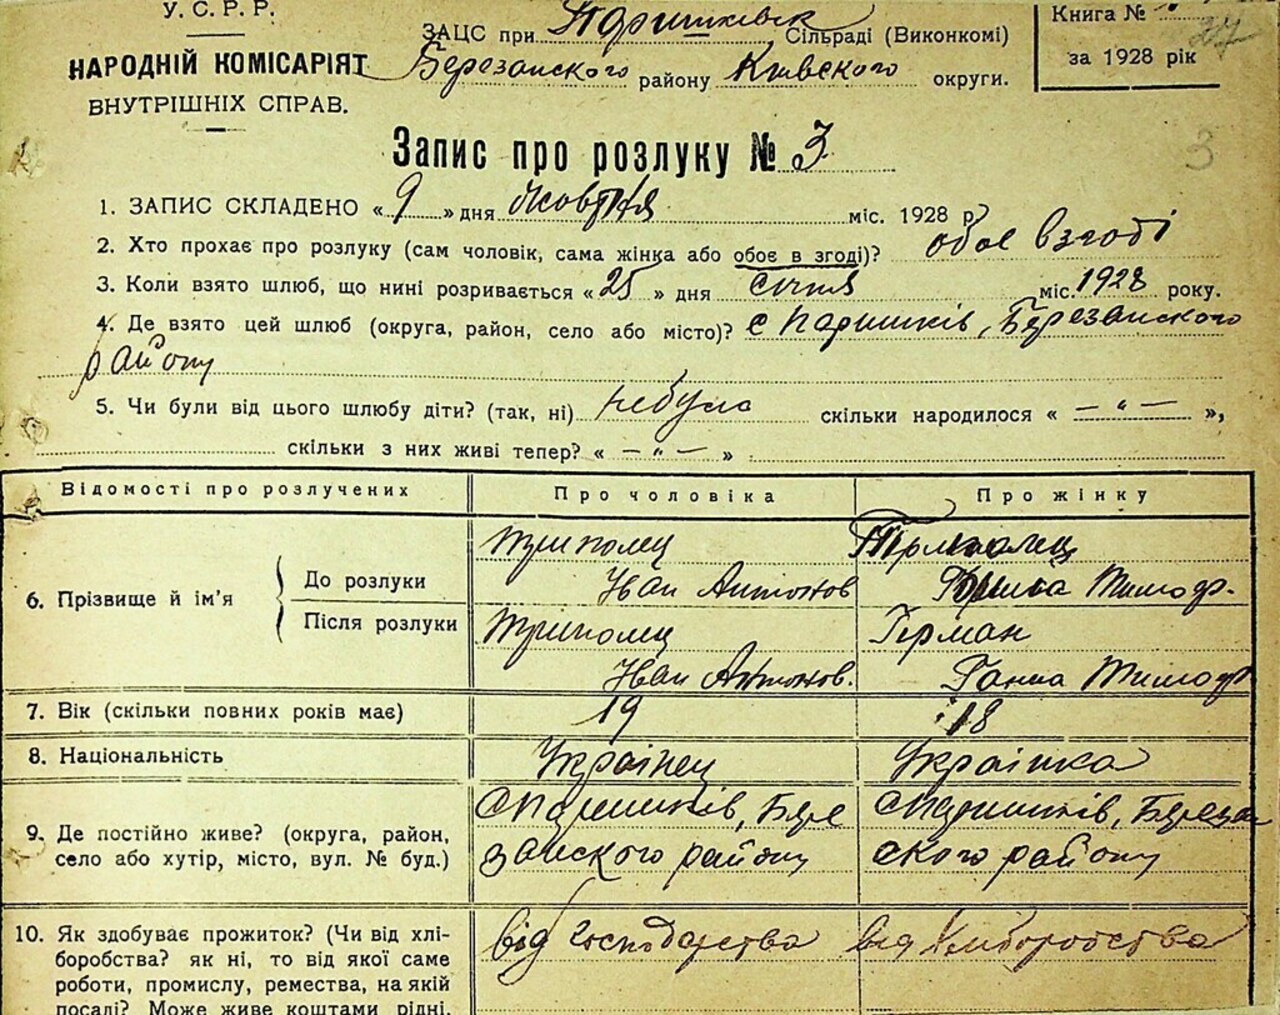 У. С. Р. Р.
НАРОДНІЙ КОМІСАРІЯТ
ВНУТРІШНІХ СПРАВ.
ЗАЦС при Паришківск Сільраді (Виконкомі)
Березанского району Київского округи.
Книга №
27
за 1928 рік
Запис про розлуку № 3
3
1. ЗАПИС СКЛАДЕНО « 9 » дня жовтня міс. 1928 р
2. Хто прохає про розлуку (сам чоловік, сама жінка або обоє в згоді)? обоє взгоді
3. Коли взято шлюб, що нині розривається « 25 » дня січня міс. 1928 року.
4. Де взято цей шлюб (округа, район, село або місто)? с Паришків, Березанского
району
5. Чи були від цього шлюбу діти? (так, ні) небуло скільки народилося « — " — »,
скільки з них живі тепер? « — " — »
Відомості про розлучених Про чоловіка Про жінку
6. Прізвище й ім'я
До розлуки
Триполец
Іван Антонов
Тимоф.
Після розлуки
Триполец
Іван Антонов.
Герман
Ганна Тимоф
7. Вік (скільки повних років має) 19 18
8. Національність Українец Українка
9. Де постійно живе? (округа, район,
село або хутір, місто, вул. № буд.)
с Паришків, Бере
занского району
с Паришків, Береза
ского району
10. Як здобуває прожиток? (Чи від хлі-
боробства? як ні, то від якої саме
роботи, промислу, ремества, на якій
посаді? Може живе коштами рідні,
від господарства
від хліборобства